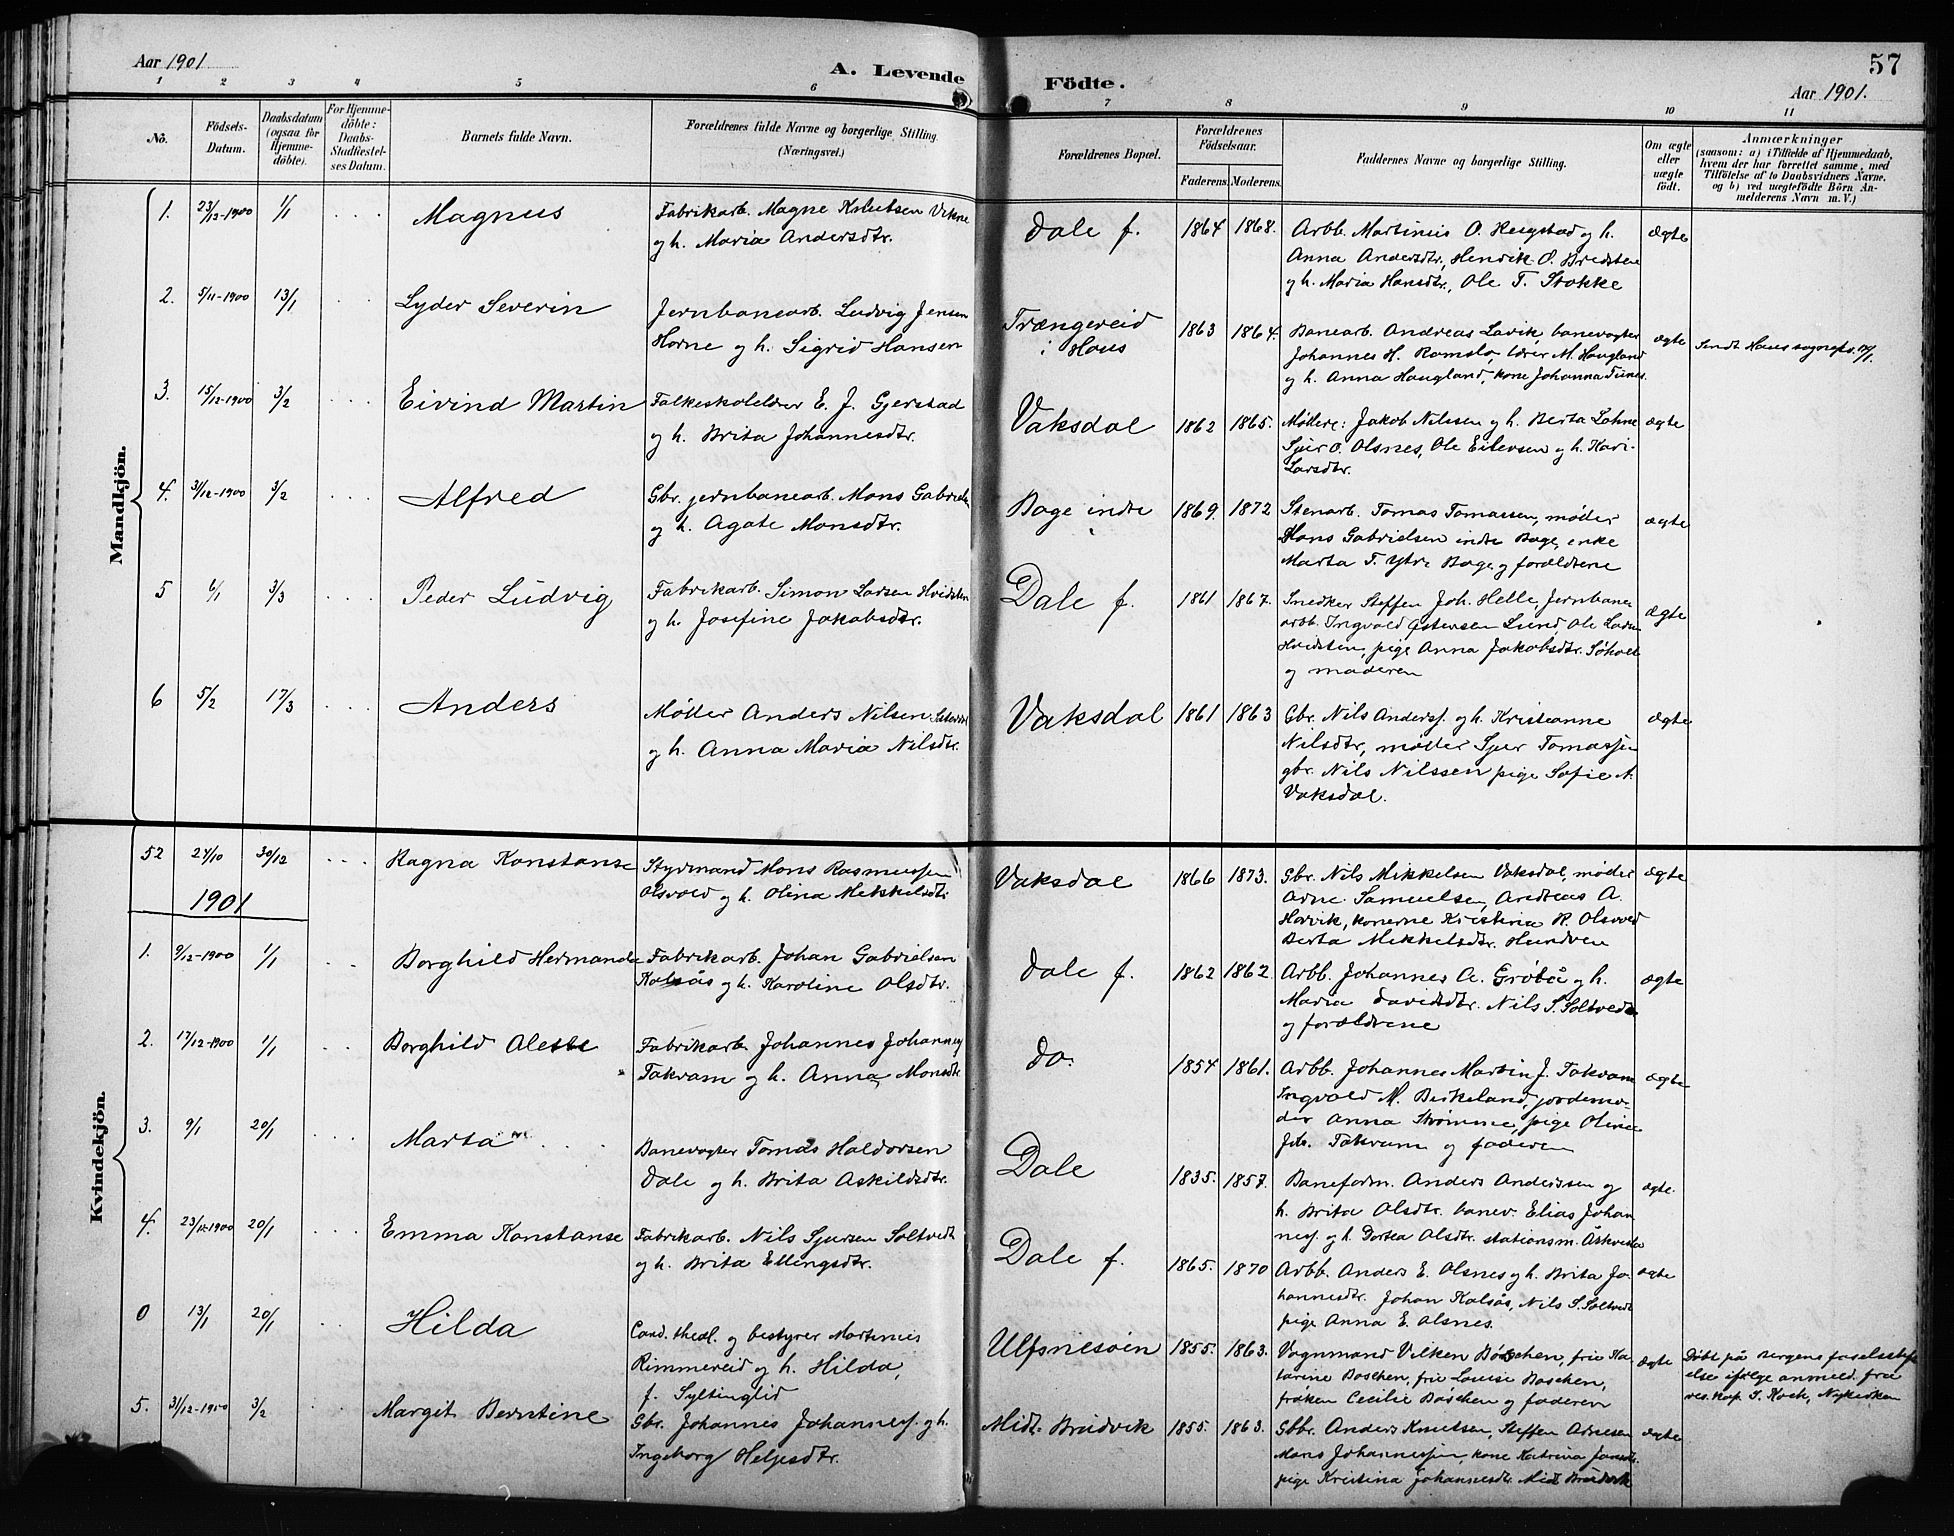 Aar 1901
A. Levende
Födte.
57
Aar 1901.
1 2 3 4 5 6 7 8 9 10 11
No.
Födsels-
Datum.
Daabsdatum
(ogsaa for
Hjemme-
döbte).
For Hjemme-
döbte:
Daabs-
Stadfæstel-
ses Datum.
Barnets fulde Navn.
Forældrenes fulde Navne og borgerlige Stilling.
(Næringsvei.)
Forældrenes Bopæl.
Forældrenes
Födselsaar.
Faderens. Moderens.
Faddernes Navne og borgerlige Stilling.
Om ægte
eller
uægte
födt.
Anmærkninger
(saasom: a) i Tilfælde af Hjemmedaab,
hvem der har forrettet samme, med
Tilföielse af to Daabsvidners Navne.
og b) ved uægtefödte Börn An-
melderens Navn m. V.)
Mandkjön.
1. 23/12-1900 1/1 Magnus
Fabrikarb. Magne Knutsen Vikne
og h. Maria Andersdtr.
Dale f. 1864 1868.
Arbb. Martinus O. Hesgstad og h.
Anna Andersdtr., Henrik O. Bredsten
og h. Maria Hansdtr., Ole T. Stokke
ægte
2. 5/11-1900 13/1 Lyder Severin
Jernbanearb. Ludvig Jensen
Horne og h. Sigrid Hansen
Trængereid
i Haus
1863 1864.
Banearb. Andreas Lavik, banevogter
Johannes H. Romslo, lærer M. Haugland
og h. Anna Haugland, kone Johanna Tunes.
ægte
Sendt Haus sognepr.
3. 15/12-1900 3/2 Eivind Martin
Folkeskolelærer E. J. Gjerstad
og h. Brita Johannesdtr.
Vaksdal 1862 1865.
Møllere: Jakob Nilssen og h. Berta Lohne
Sjur O. Olsnes, Ole Eilevsen og h. Kari
Larsdtr.
ægte
4. 3/12-1900 3/2 Alfred
Gbr. jernbanearb. Mons Gabrielsen
og h. Agate Monsdtr.
Boge indre 1869. 1872
Stenarb. Tomas Tomassen, møller
Hans Gabrielsen indre Boge, enke
Marta T. Ytre Boge og forældrene
ægte
5 6/1 3/3 Peder Ludvig
Fabrikarb. Simon Larsen Hvidsten
og h. Josefine Jakobsdtr.
Dale f. 1861 1867.
Snedker Steffen Joh. Helle, Jernbane
arbb. Ingvald Østensen Lund, Ole Larsen
Hvidsten, pige Anna Jakobsdtr.
og moderen
ægte
6 5/2 17/3 Anders
Møller Anders Nilsen
og h. Anna Maria Nilsdtr.
Vaksdal 1861 1863
Gbr. Nils Anderss. og h. Kristianne
Nilsdtr, møller Sjur Tomassen
gbr. Nils Nilssen pige Sofie A.
Vaksdal.
ægte
Kvindekjön.
52 24/10 30/12 Ragna Konstanse
Styrmand Mons Rasmussen
Olsvold og h. Olina Mikkelsdtr.
Vaksdal 1866 1873.
Gbr. Nils Mikkelsen Vaksdal, møller
Arne Samuelsen, Andreas A.
Horvik, konerne Kristina R. Olsvold
Berta Mikkelsdtr. Hundven
ægte
1901
1. 9/12-1900 1/1 Borghild Hermanda
Fabrikarb. Johan Gabrielsen
Kalsås og h. Karoline Olsdtr.
Dale f. 1862 1862.
Arbb. Johannes A. Gråtå og h.
Maria Davidsdtr. Nils S. Soltvedt
og forældrene
ægte
2. 17/12-1900 1/1 Borghild Alette
Fabrikarb. Johannes Johannes
Takvam og h. Anna Monsdtr.
Do. 1854 1861.
Arbb. Johannes Martin J. Takvam
Ingvald M. Birkeland, jordemo-
der Anna Strømme, pige Olina
Joh. Takvam og faderen
ægte
3. 9/1 20/1 Marta
Banevogter Tomas Haldorsen
Dale og h. Brita Askildsdtr.
Dale 1835. 1857.
Baneform. Anders Anderssen og
h. Brita Olsdtr. banev. Elias Johan
ness. og h. Dortea Olsdtr. stationsm.
ægte.
4. 23/11-1900 20/1 Emma Konstanse
Fabrikarb. Nils Sjursen Soltvedt
og h. Brita Ellingsdtr.
Dale f. 1865. 1870
Arbb. Anders E. Olsnes og h. Brita Jo-
hannesdtr. Johan Kalsås, Nils S. Soltvedt
pige Anna E. Olsnes.
ægte
0 13/1 20/1 Hilda
Cand. theol. og bestyrer Martinus
Rimmereid og h. Hilda,
f. Syltinglid
Ulfsnesøien 1855. 1863.
Vognmand Vilken Böschen, frue Ka-
tarine Böschen, frue Louise Böschen,
frøken Cecilie Böschen og faderen
ægte
Døbt på Bergens fødselsstift-
else ifølge anmeld. fra
res. kap. S. Koch, Nykirken
5. 31/12-1900 3/2 Margit Berntine
Gbr. Johannes Johanness. og h.
Ingeborg Helgesdtr.
Midt-Brudvik 1855. 1863.
Gbbr. Anders Knutsen, Steffen Arnesen
Mons Johannessen, kone Katrina Jansdtr.
pige Kristina Johannesdtr. Midt Bruvik
ægte